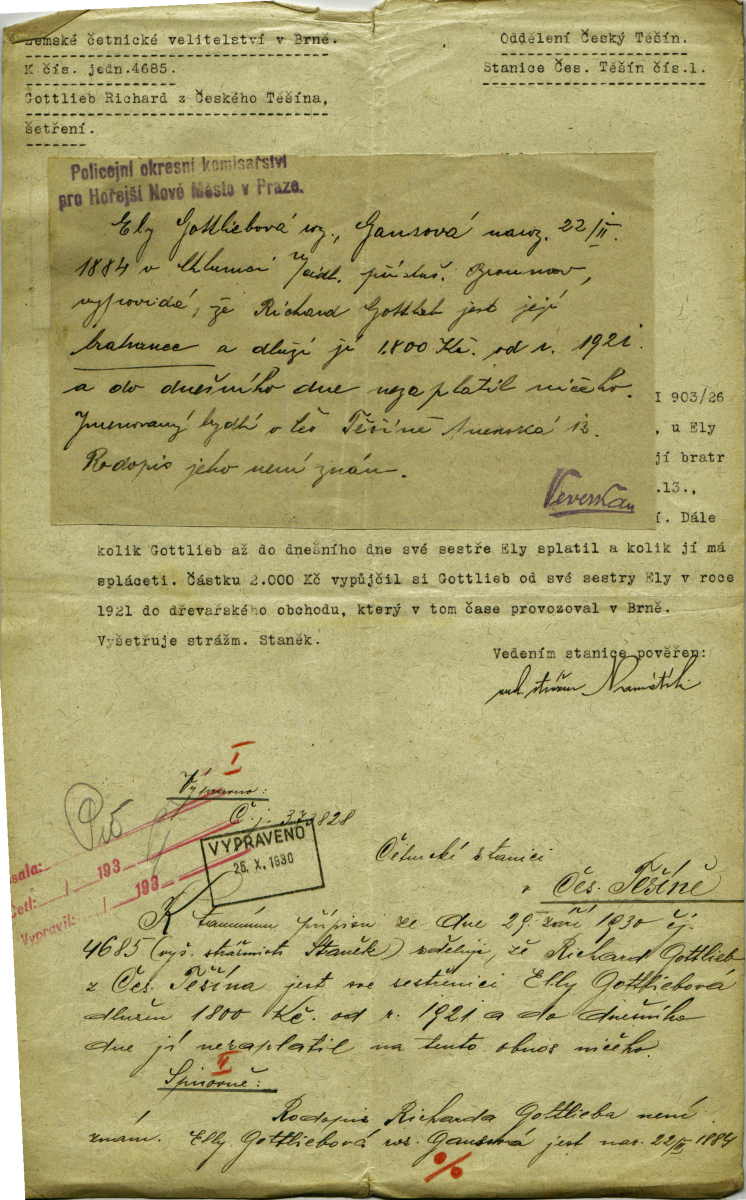 Zemské četnické velitelství v Brně.
K čís. jedn.4685.
Gottlieb Richard z Českého Těšína,
šetření.
Oddělení Český Těšín.
Stanice Čes. Těšín čís.1.
Policejní okresní komisařství
pro Hořejší Nové Město v Praze.
Ely Gottliebová roz., Gansová naroz. 22/II.
1884 v Chlumci přísluš.
vypovídá, že Richard Gottlieb jest její
bratranec a dluží jí 1.800 Kč. od r. 1921
a do dnešního dne nezaplatil ničeho.
Jmenovaný bydlí v Čes Těšíně 13.
Rodopis jeho není znám.
I 903/26
, u Ely
jí bratr
.13.,
í. Dále
kolik Gottlieb až do dnešního dne své sestře Ely splatil a kolik jí má
spláceti. Částku 2.000 Kč vypůjčil si Gottlieb od své sestry Ely v roce
1921 do dřevařského obchodu, který v tom čase provozoval v Brně.
Vyšetřuje strážm. Staněk.
Vedením stanice pověřen:
I
Č. j. 828
VYPRAVENO
25. X. 1930
psala:
193
Četl: / 193
Vypravil:
Četnické stanici
v Čes. Těšíně
K tamnímu přípisu ze dne 29. září 1930 čj.
4685 (vyš. strážmistr Staněk) sděluji, že Richard Gottlieb
z Čes. Těšína jest své sestřenici Elly Gottliebové
dlužen 1800 Kč. od r. 1921 a do dnešního
dne jí nezaplatil na tento obnos ničeho.
II
Rodopis Richarda Gottlieba není
znám. Elly Gottliebová roz. Gansová jest nar. 22/II 1884
%